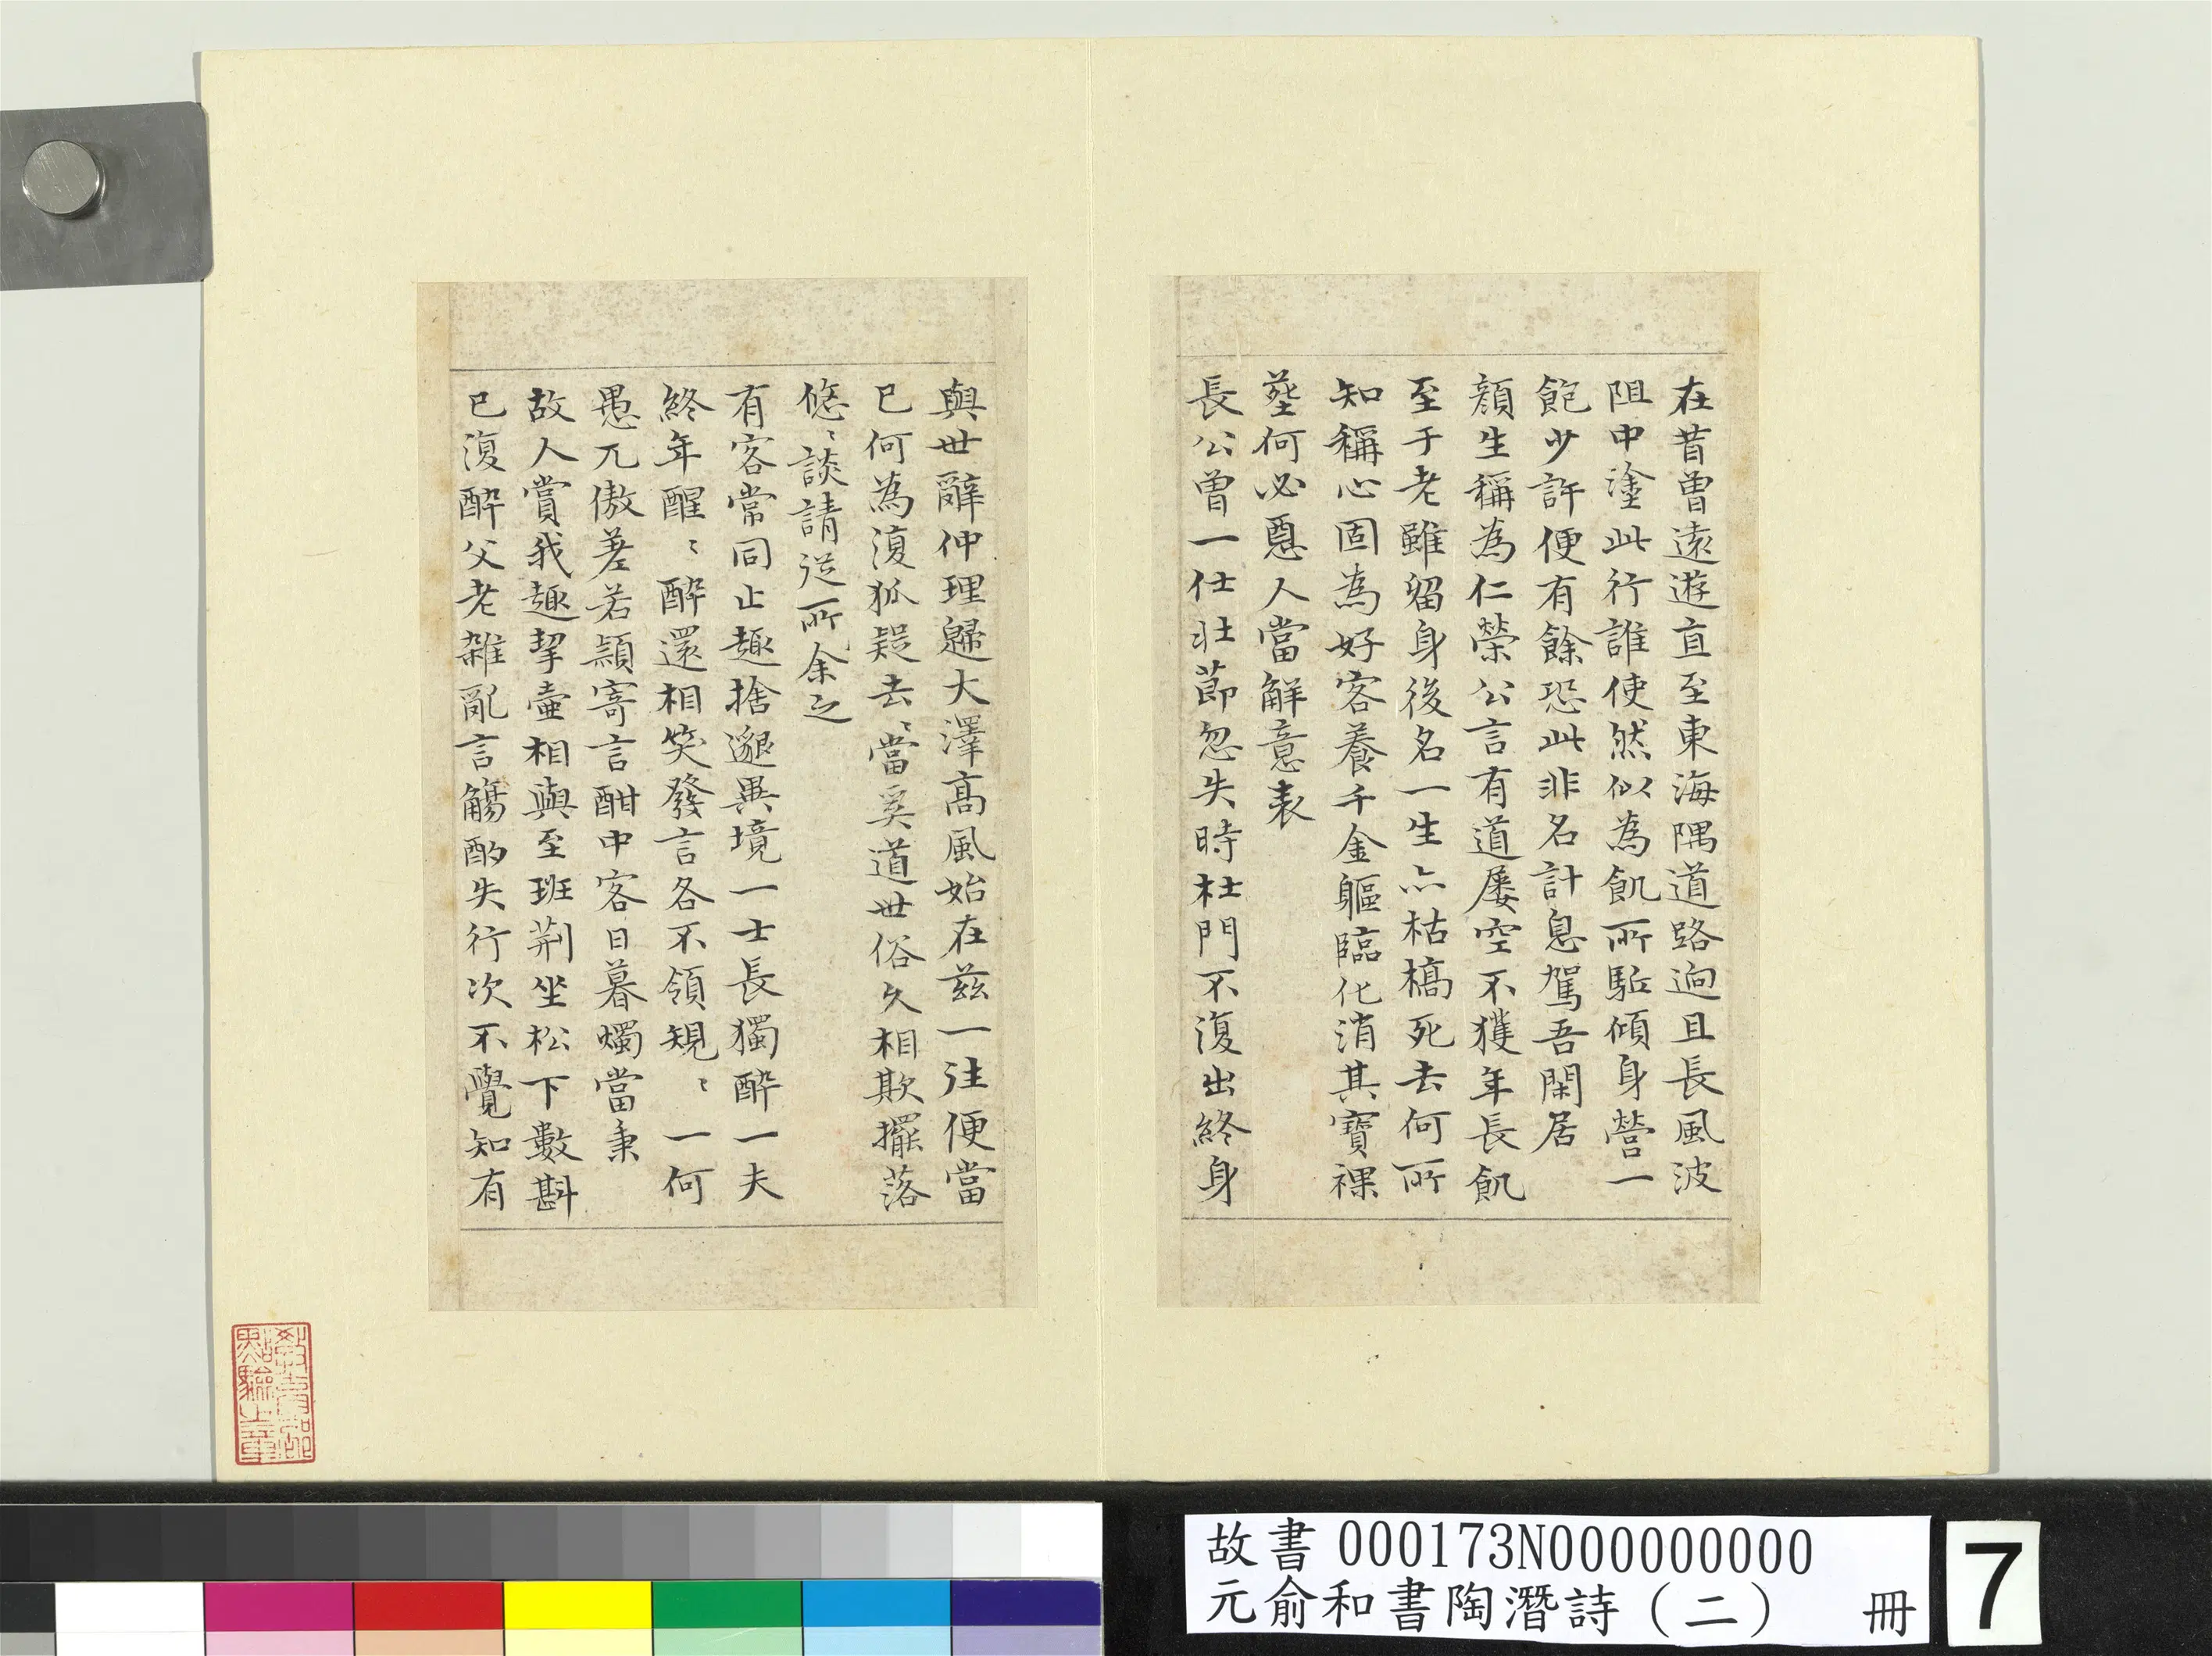 在昔曾遠遊直至東海隅道路逈且長風波
阻中塗此行誰使然似為飢所駈傾身營一
飽少許便有餘恐此非名計息駕吾閑居
顔生稱為仁榮公言有道屢空不獲年長飢
至于老雖留身後名一生亦枯槁死去何所
知稱心固為好客養千金軀臨化消其寶裸
葬何必惡人當解意表
長公曾一仕壯莭忽失時杜門不復出終身
與世辭仲理歸大澤高風始在茲一往便當
已何為復狐疑去〻當奚道世俗久相欺擺落
悠〻談請従所余之
有客常同止趣捨邈異境一士長獨醉一夫
終年醒〻醉還相笑發言各不領規〻一何
愚兀傲差若穎寄言酣中客日暮燭當秉
故人賞我趣挈壷相與至班荆坐松下數斟
已復醉父老雜亂言觴酌失行次不覺知有
教育部
點驗之章
故書 000173N000000000
元俞和書陶潛詩（二） 冊
7